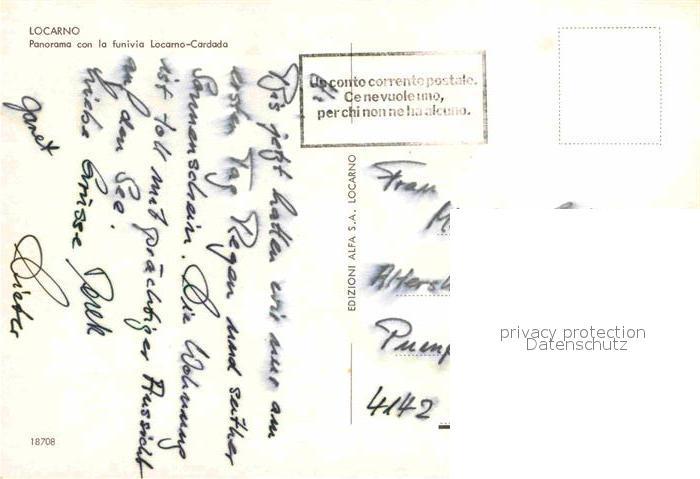 LOCARNO
Panorama con la funivia Locarno-Cardada
Un conto corrente postale.
Ce ne vuole uno,
per chi non ne ha alcuno.
Bis jetzt hatten wir nur am
ersten Tag Regen und seither
Sonnenschein. Die Wohnung
ist toll mit prächtiger Aussicht
auf den See.
Liebe Grüsse
Janet
Dieter
EDIZIONI ALFA S.A. LOCARNO
Frau
4142
privacy protection
Datenschutz
18708